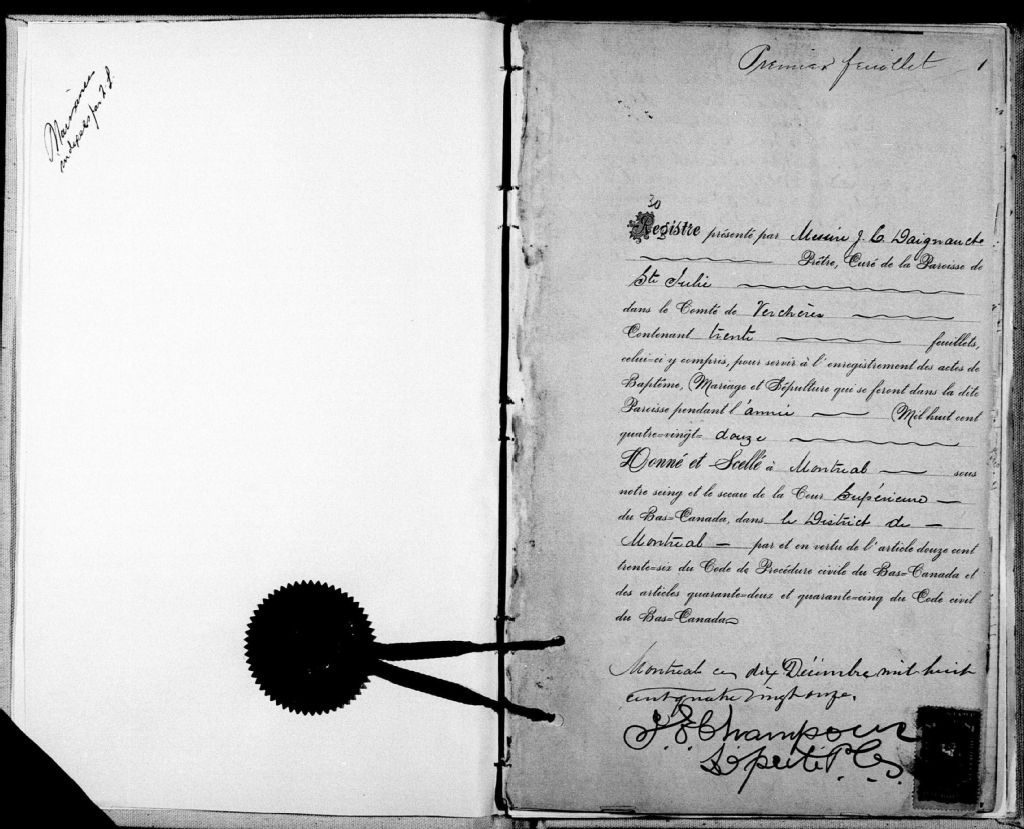 Mariages
indexés par
Premier feuillet 1
30
Registre présenté par Messire J. C. Daignault
Prêtre, Curé de la Paroisse de
Ste Julie
dans le Comté de Verchères
Contenant trente feuillets,
celui-ci y compris, pour servir à l'enregistrement des actes de
Baptême, Mariage et Sépulture qui se feront dans la dite
Paroisse pendant l'année Mil huit cent
quatre-vingt- douze
Donné et Scellé à Montréal sous
notre seing et le sceau de la Cour Supérieure
du Bas-Canada, dans le District de
Montréal par et en vertu de l'article douze cent
trente-six du Code de Procédure civile du Bas-Canada et
des articles quarante-deux et quarante-cinq du Code civil
du Bas-Canada
Montréal ce dix Décembre mil huit
cent quatre vingt onze.
Champoux
Député P.C.S.